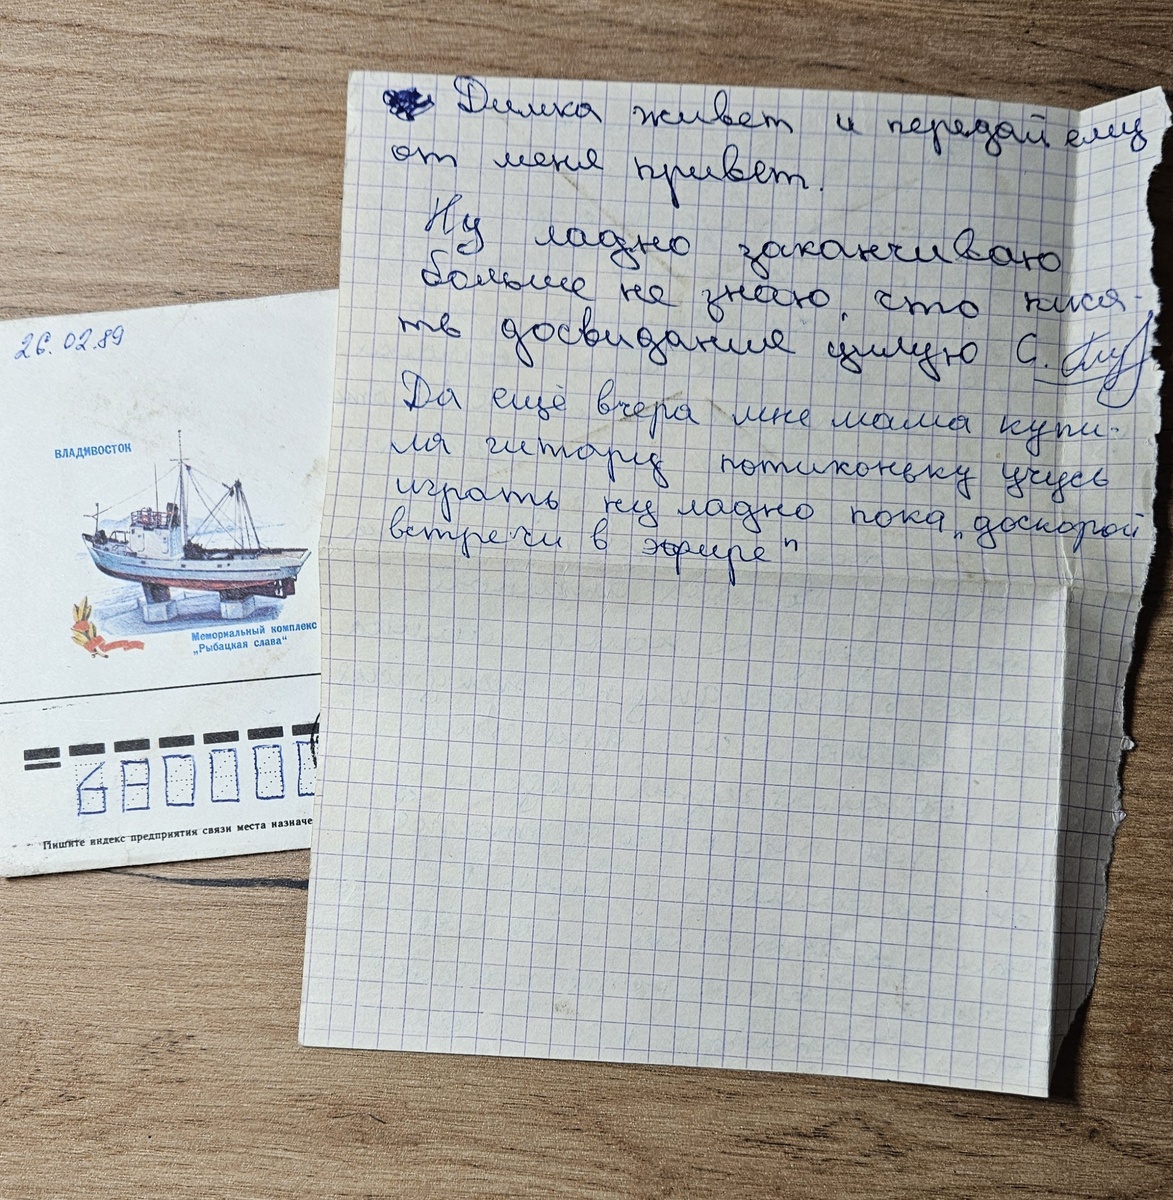 Димка живет и передай ему
от меня привет.
Ну ладно заканчиваю
больше не знаю, что писа-
ть досвидание цилую С.
Да ещё вчера мне мама купи-
ла гитару потихоньку учусь
играть ну ладно пока „доскорой
встречи в эфире"
26.02.89
ВЛАДИВОСТОК
Мемориальный комплекс
„Рыбацкая слава"
Пишите индекс предприятия связи места назначе